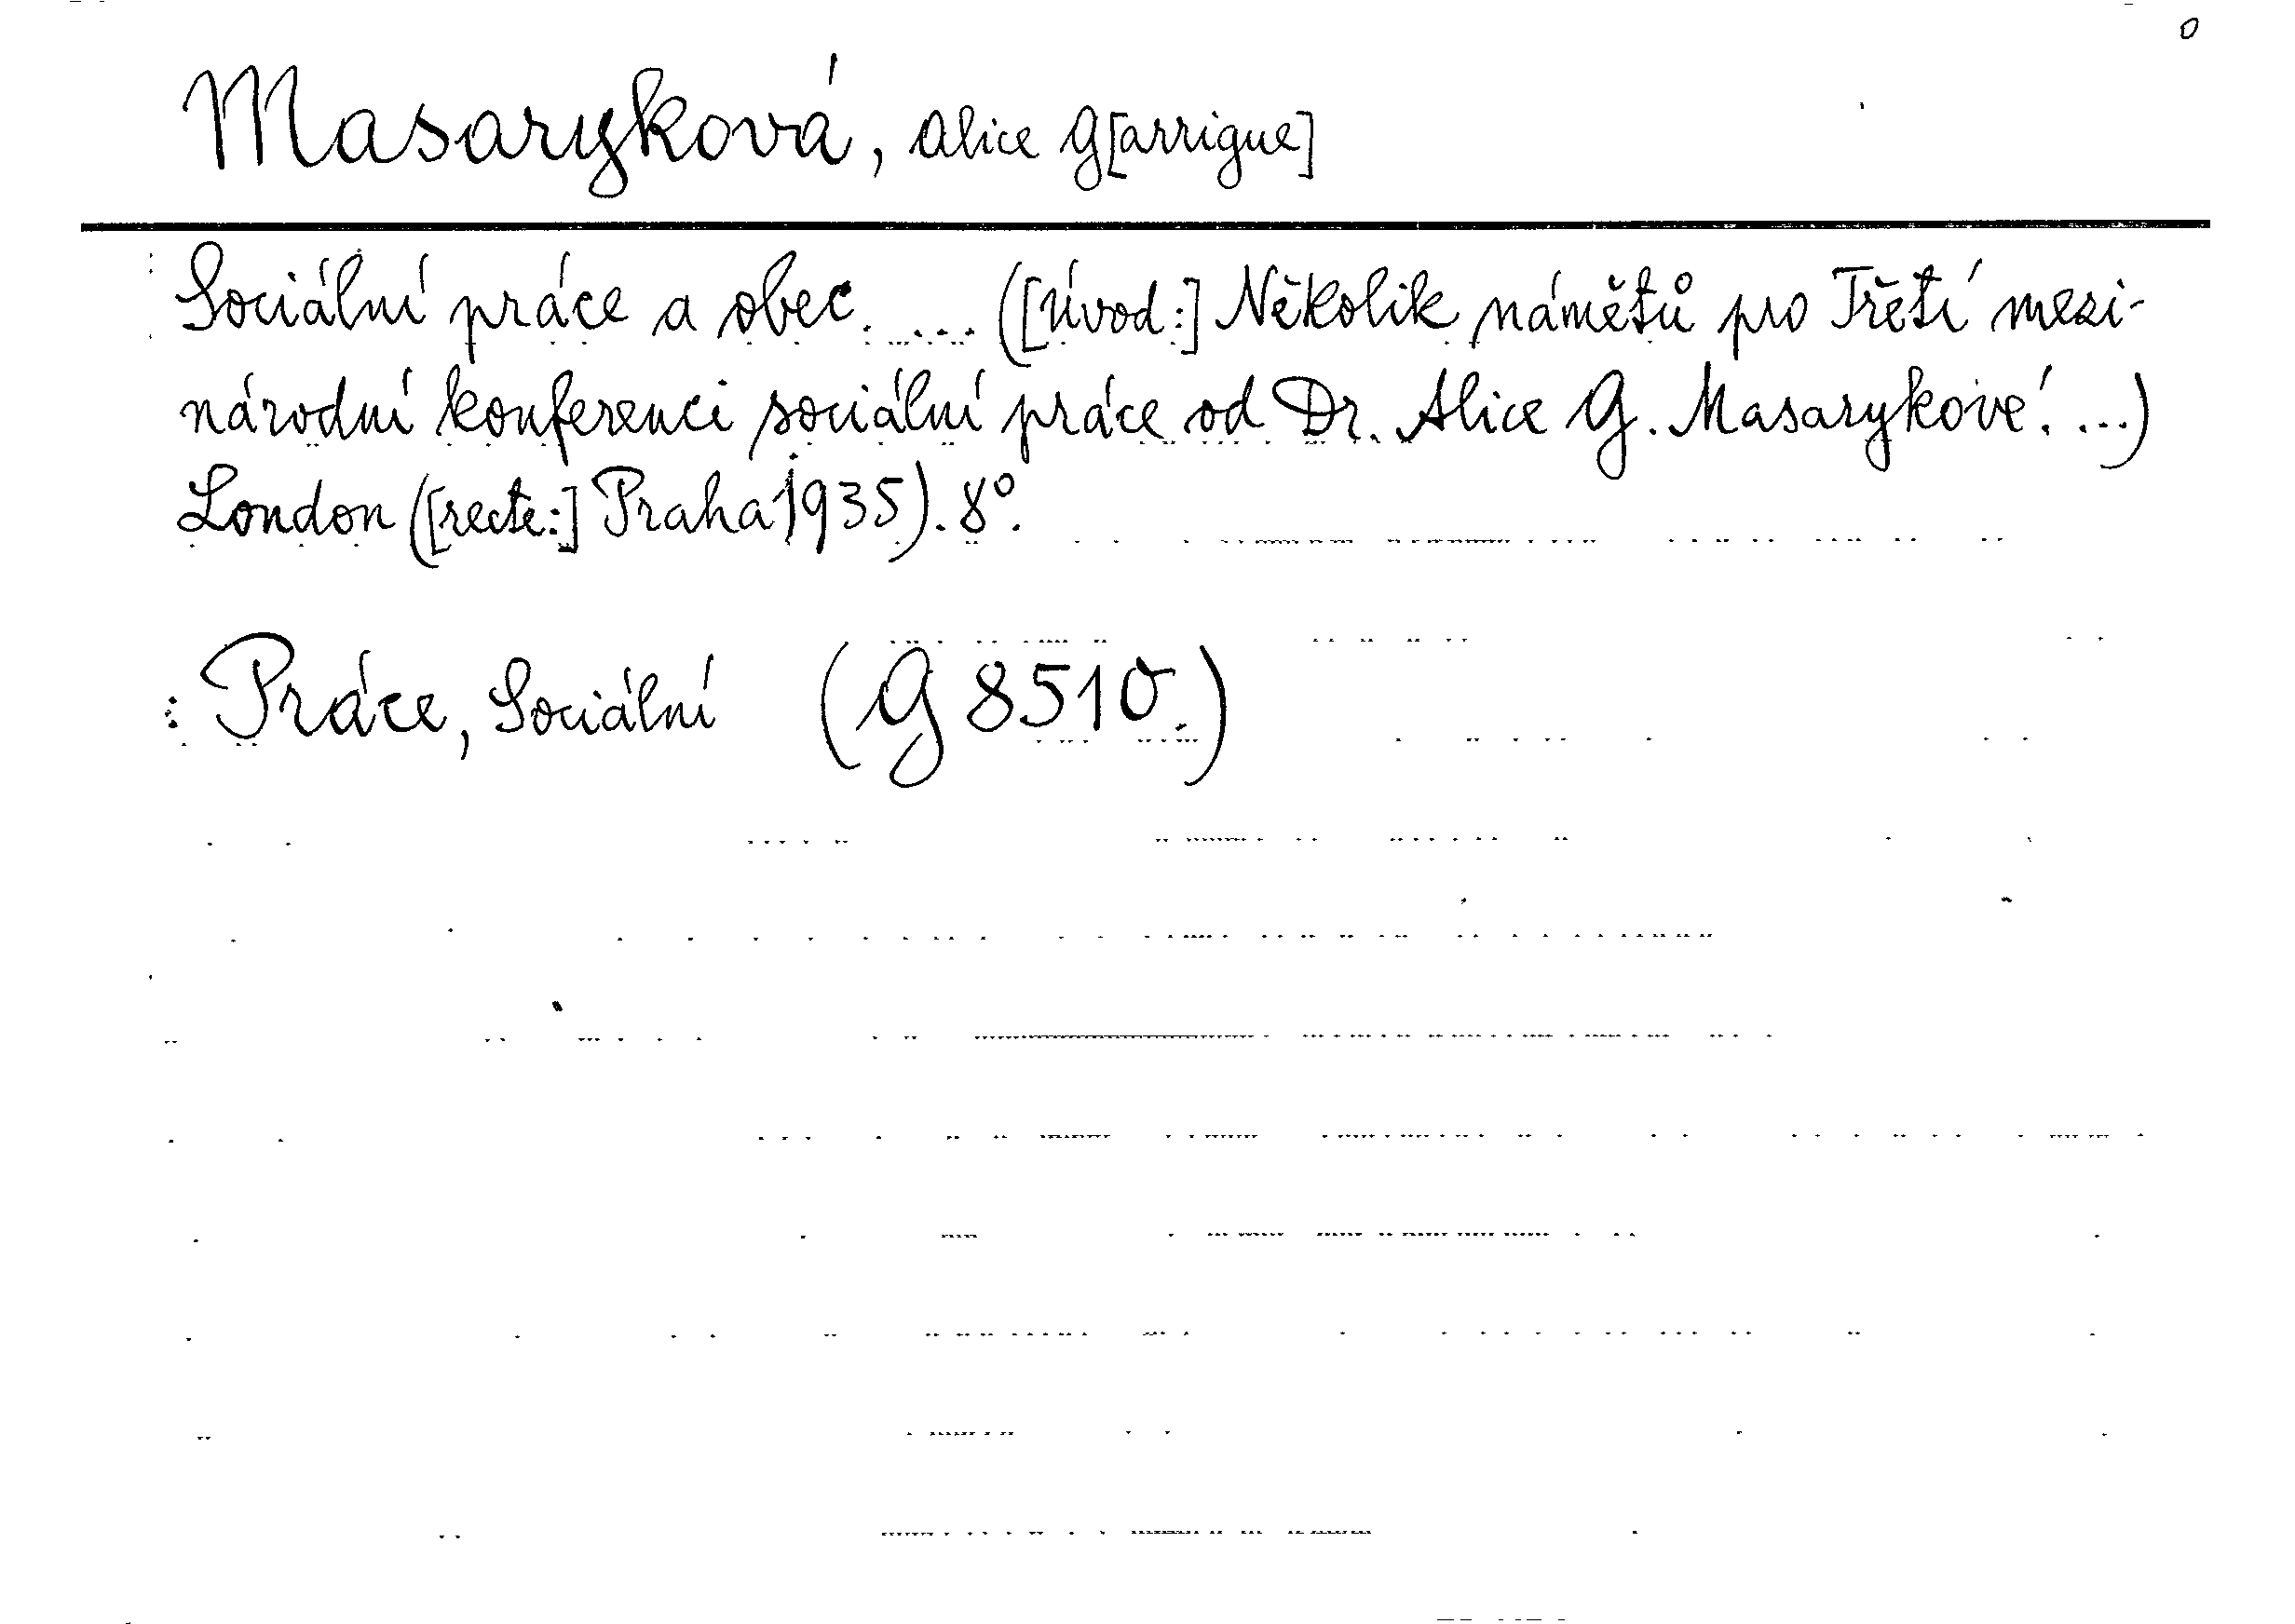 0
Masaryková, Alice G[arrigue]
Sociální práce a obec. ... ([Úvod:] Několik námětů pro Třetí mezi-
národní konferenci sociální práce od Dr. Alice G. Masarykové. ...)
London ([recte:] Praha 1935). 8°.
: Práce, Sociální (G 8510.)